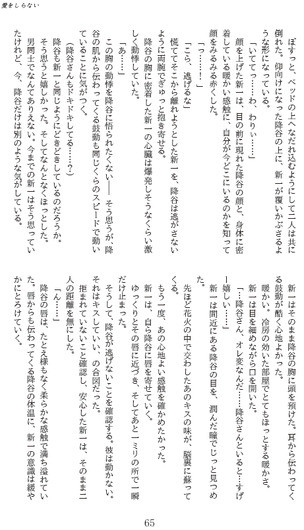 愛をしらない
ぼすっと、ベッドの上へなだれ込むようにして二人は共に
倒れた。仰向けになった降谷の上に、新一が覆いかぶさるよ
うな形になっている。
「いてっ……、わわっ……」
顔を上げた新一は、目の前に現れた降谷の顔と、身体に密
着している暖かい感触に、自分が今どこにいるのかを知って
顔をみるみる赤くした。
「っ……！」
「こら、逃げるな」
慌ててそこから離れようとした新一を、降谷は逃がさない
ように両腕でぎゅっと抱き寄せる。
降谷の胸に密着した新一の心臓は爆発しそうなくらい激
しく動悸していた。
「あ……」
この胸の動悸を降谷に悟られたくない――そう思うが、降
谷の肌から伝わってくる鼓動も同じくらのスピードで動い
ていることに気がつく。
（降谷さんも、ドキドキしてる……？）
降谷も新一と同じようにどきどきしているのだろうか。
そう思うと嬉しかった。そしてなんとなくほっとした。
男同士でなんてありえない。今までの新一はそう思ってい
たけれど、今、降谷だけは別のような気がしている。
新一はそのまま降谷の胸に頭を預けた。耳から伝わってく
る鼓動が酷く心地よかった。
暖かい。冷房の効いた部屋でとてもほっとする暖かさ。
新一は目を細めながら口を開いた。
「……降谷さん、オレ変なんだ……降谷さんといると…すげ
ー嬉しい……」
新一は間近にある降谷の目を、潤んだ瞳でじっと見つめ
る。
先ほど花火の中で交わしたあのキスの味が、脳裏に蘇って
くる。
もう一度、あの心地よい感触を確かめたかった。
新一は、自ら降谷に唇を寄せていく。
ゆっくりとその唇に近づき、そしてあと一ミリの所で一瞬
だけ止まった。
そうして、降谷が逃げないことを確認する。彼は動かない。
それはキスしていい、の合図だった。
拒まれていないこと確認し、安心した新一は、そのまま二人
の距離を無にした。
「ん……」
降谷の唇は、たとえ様もなく柔らかな感触で満ち溢れてい
た。唇からも伝わってくる降谷の体温に、新一の意識は緩や
かにとろけていく。
65